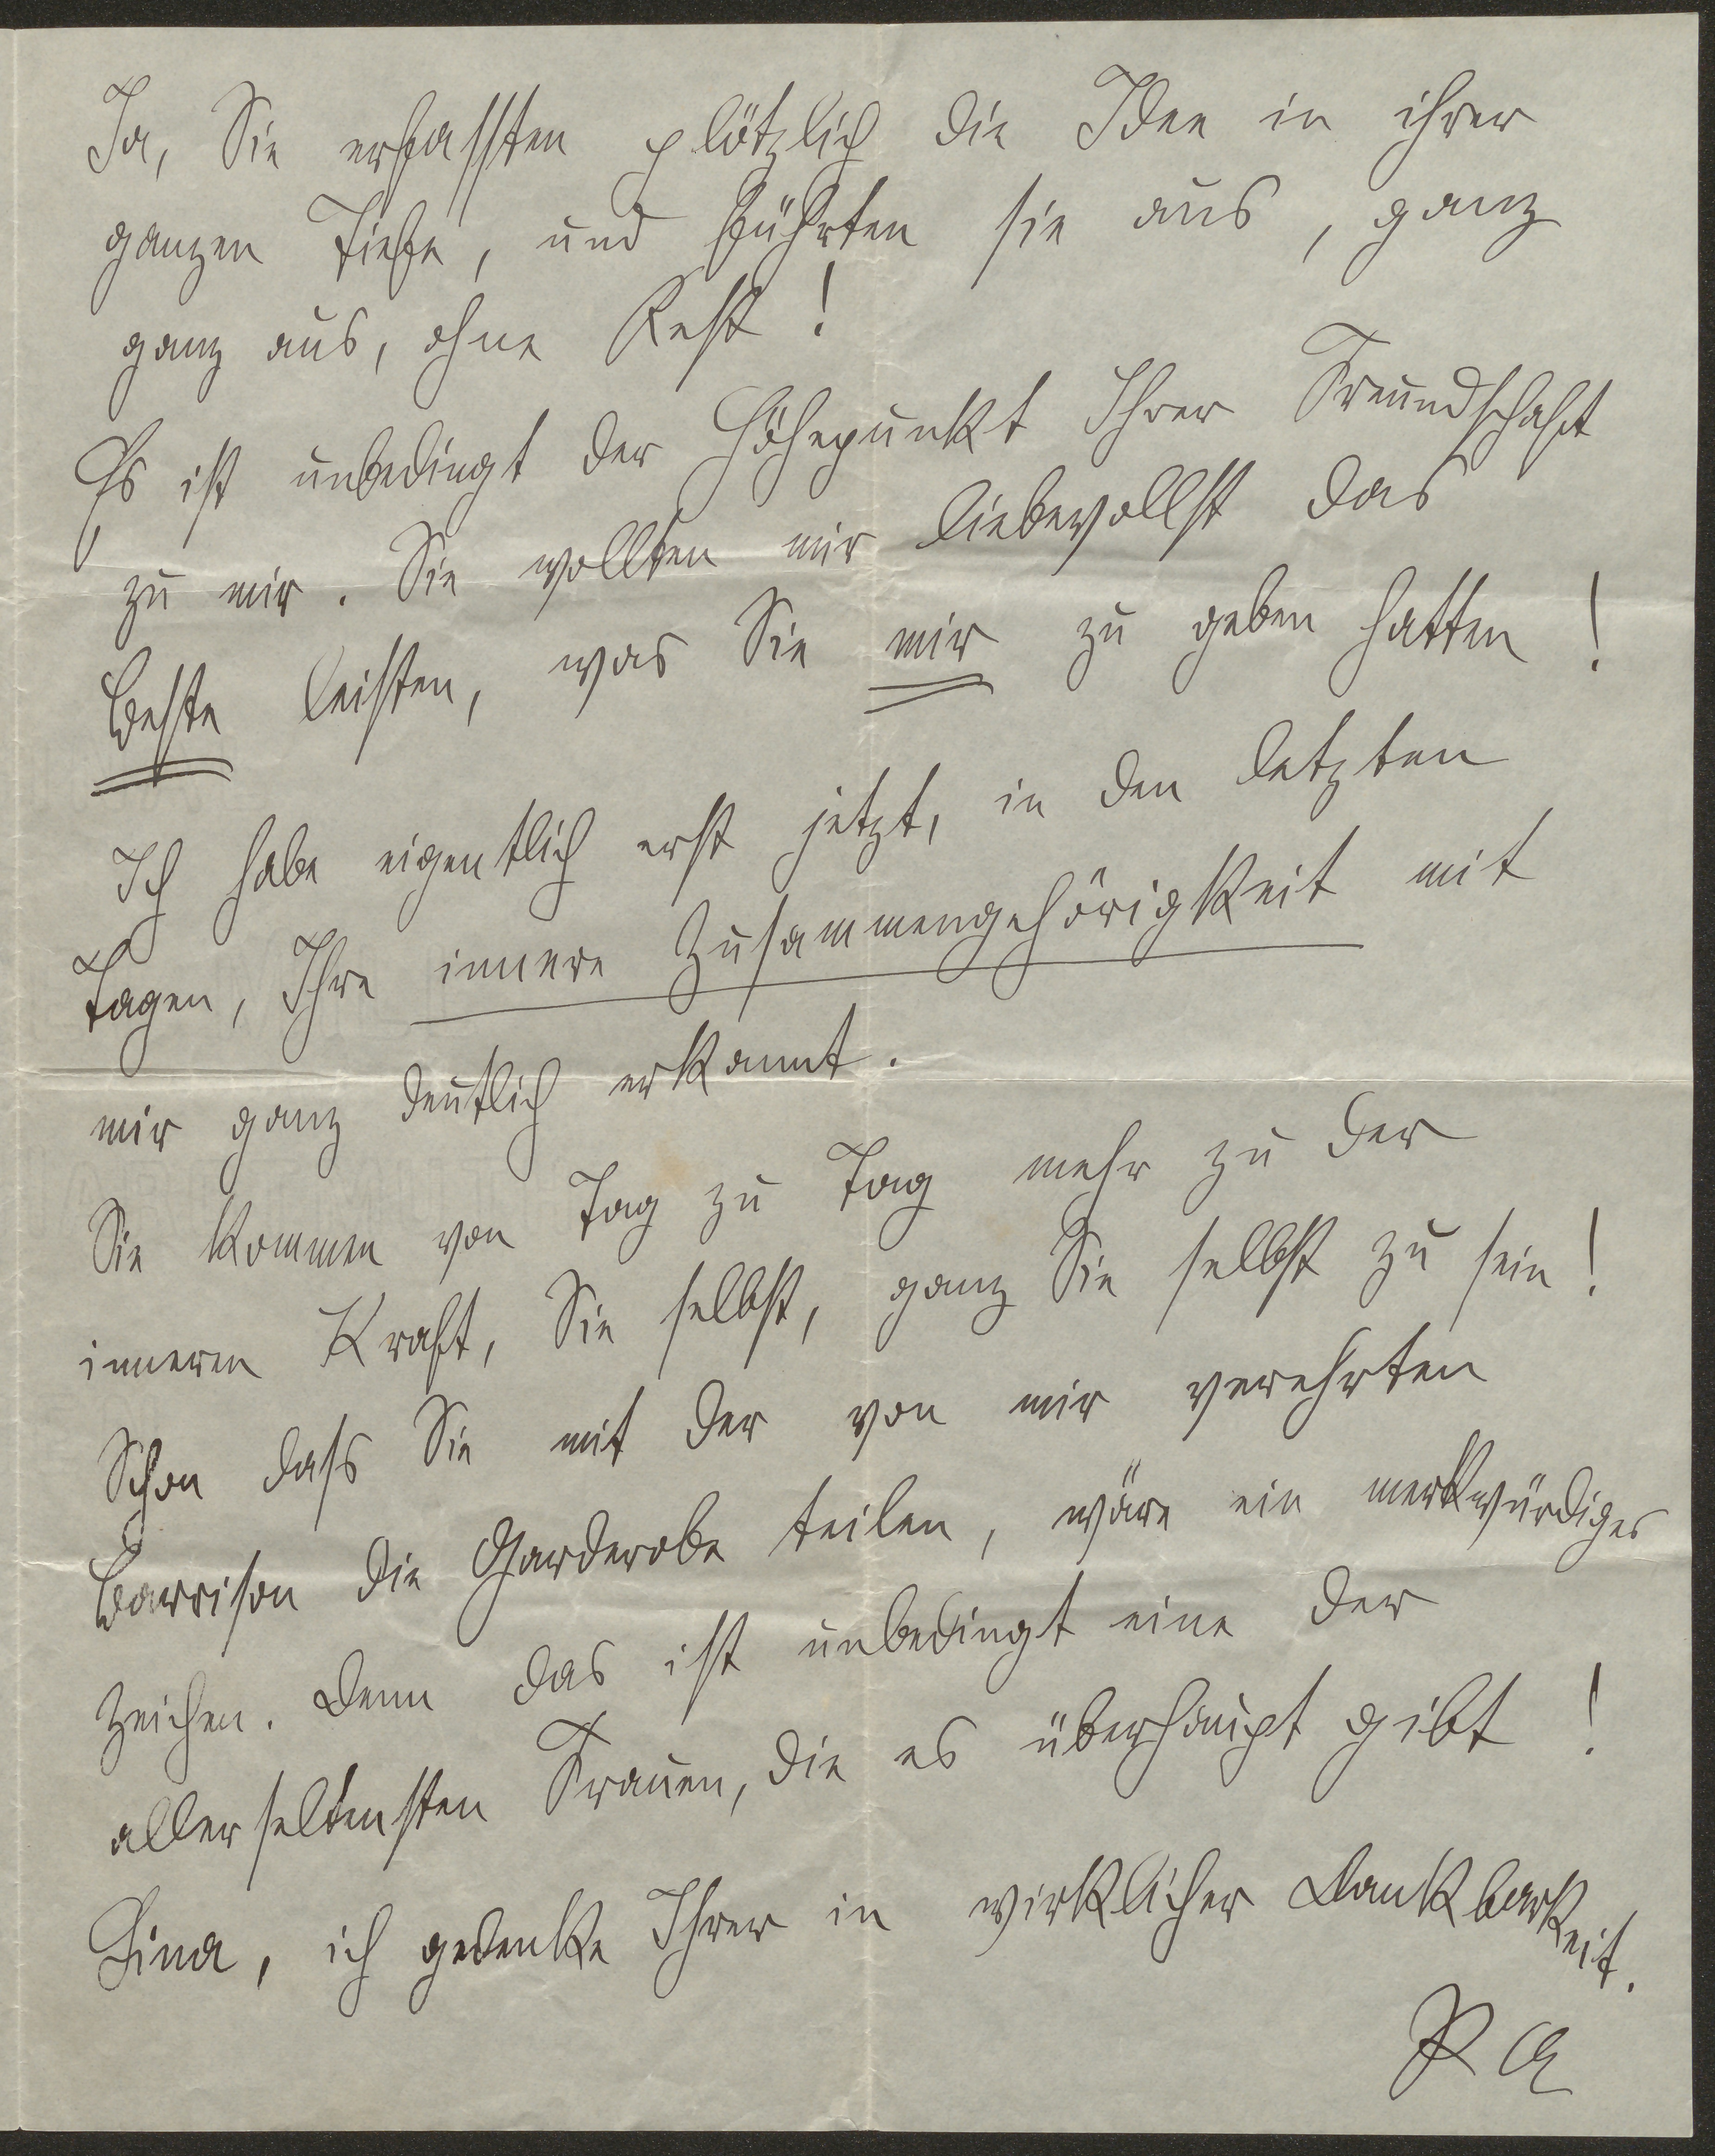 Ja, Sie erfassten plötzlich die Idee in ihrer
ganzen Tiefe, und führten sie aus, ganz
ganz aus, ohne Rest!
Es ist unbedingt der Höhepunkt Ihrer Freundschaft
zu mir. Sie wollten mir liebevollst das
Beste leisten, was Sie mir zu geben hatten!
Ich habe eigentlich erst jetzt, in den letzten
Tagen, Ihre innere Zusammengehörigkeit mit
mir ganz deutlich erkannt.
Sie kommen von Tag zu Tag mehr zu der
inneren Kraft, Sie selbst, ganz Sie selbst zu sein!
Schon dass Sie mit der von mir verehrten
Barrison die Garderobe teilen, wäre ein merkwürdiges
Zeichen. Denn das ist unbedingt eine der
allerseltensten Frauen, die es überhaupt gibt!
Lina, ich gedenke Ihrer in wirklicher Dankbarkeit.
PA